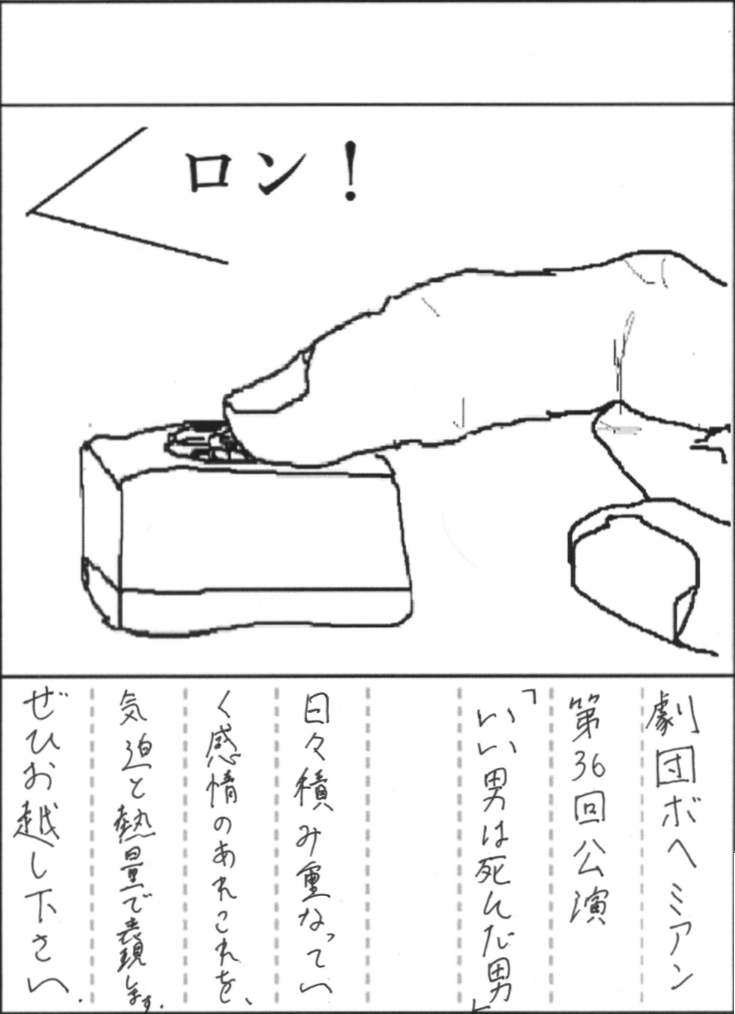 ロン！
劇団ボヘミアン
第36回公演
「いい男は死んだ男」
日々積み重なってい
く感情のあれこれを、
気迫と熱量で表現します。
ぜひお越し下さい。